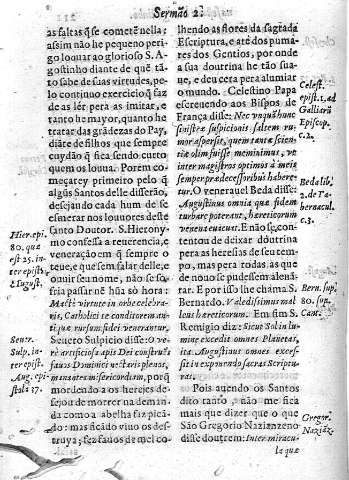 Sermão 2.
as faltas q̃ se cometẽ nella:
assim não he pequeno peri-
go louuar ao glorioso S. A-
gostinho diante de que tã-
to sabe de suas virtudes, pe-
lo continuo exercicio q̃ faz
de as lér pera as imitar, e
tanto he mayor, quanto he
tratar das grãdezas do Pay,
diãte de filhos que sempre
cuydão q̃ fica sendo curto
quem os louua. Porem co-
meçarey primeiro pelo q̃
algũs Santos delle disserão,
desejando cada hum de se
esmerar nos louuores deste
santo Doutor. S. Hierony-
mo confessa a reuerencia, e
veneração em q̃ sempre o
teue, e que sem falar delle, e
ouuir seu nome, não se so-
fria passarse hũa só hora:
Macti virtute in orbe celebra-
ris, Catholici te conditorem anti-
quæ rursum fidei venerantur.
Seuero Sulpicio disse: O ve-
re artificiosa apis Dei construẽs
fauos Dominici nectaris plenos,
manantem misericordiam, porq̃
mordendo a os hereges de-
sejou de morrer na deman-
da como a abelha faz picã-
do: mas ficãdo viuo os des-
truya; fez fauos de mel co-
Hier. epi.
80. quæ
est 25. in
ter epist.
August.
2
Seuer.
Sulp. in
ter epist.
Aug. epi-
stola 37.
lhendo as flores da sagrada
Escriptura, e até dos puma-
res dos Gentios, por onde
a sua doutrina he tão sua-
ue, e deu cera pera alumiar
o mundo. Celestino Papa
escreuendo aos Bispos de
França disse: Nec vnquã hunc
sinistræ suspicionis saltem ru-
mor aspersit, quem tantæ scien-
tiæ olim fuisse meminimus, vt
inter magistros optimos à meis
semper prædecessoribus habere-
tur. O venerauel Beda disse:
Augustinus omnia quæ fidem
turbare poterant, hæreticorum
venena euicit. E não se con-
tentou de deixar doutrina
pera as heresias de seu tem-
po, mas pera todas as que
de nouo se pudessem aleuã-
tar. E por isso lhe chama S.
Bernardo. Validissimus mal-
leus hæreticorum. Em fim S.
Remigio diz: Sicut Sol in lu-
mine excedit omnes Planetas,
ita Augustinus omnes exces-
sit in exponendo sacras Scriptu-
ras.
Pois auendo os Santos
dito tanto, não me fica
mais que dizer que o que
São Gregorio Nazianzeno
disse doutrem: Inter miracu-
la quæ
Celest.
epist. 1. ad
Galliarũ
Episcop.
c. 2.
Beda lib
2. de Ta-
bernacul.
c. 3.
Bern. sup.
80. sup.
Cant.
Gregor.
Naziãz.